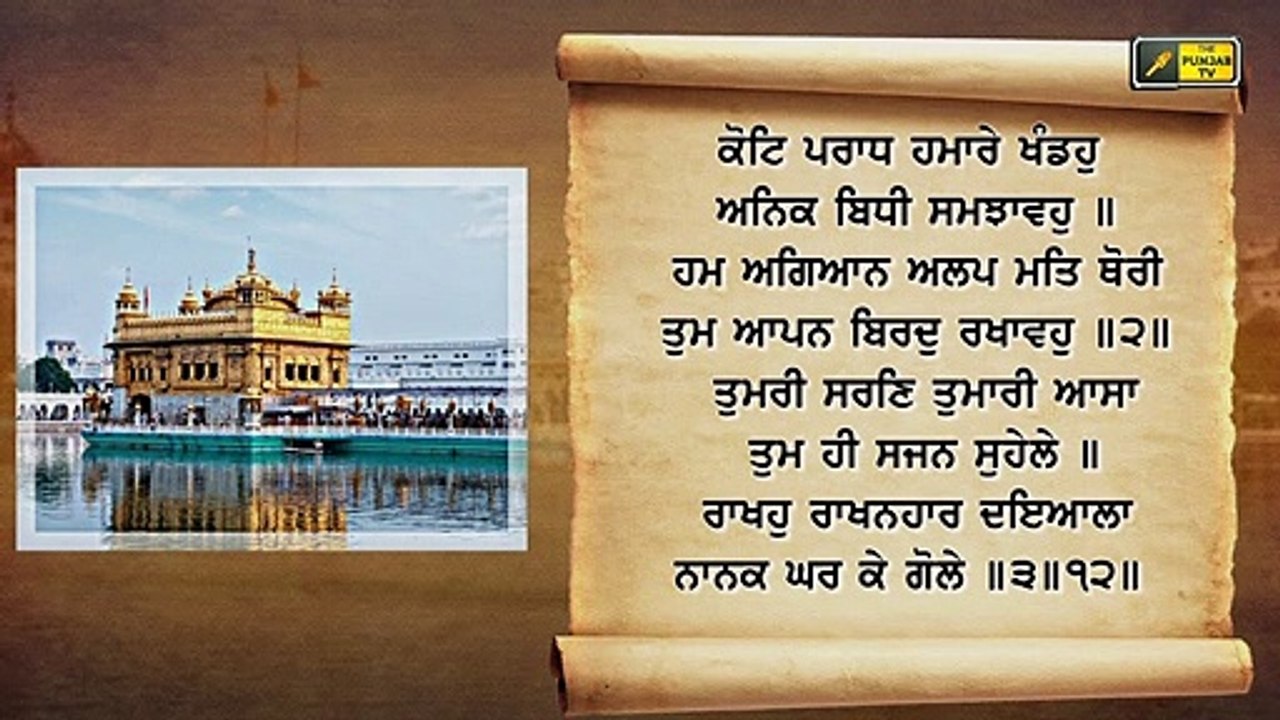 THE
PUNJAB
TV
ਕੋਟਿ ਪਰਾਧ ਹਮਾਰੇ ਖੰਡਹੁ
ਅਨਿਕ ਬਿਧੀ ਸਮਝਾਵਹੁ ॥
ਹਮ ਅਗਿਆਨ ਅਲਪ ਮਤਿ ਥੋਰੀ
ਤੁਮ ਆਪਨ ਬਿਰਦੁ ਰਖਾਵਹੁ ॥੨॥
ਤੁਮਰੀ ਸਰਣਿ ਤੁਮਾਰੀ ਆਸਾ
ਤੁਮ ਹੀ ਸਜਨ ਸੁਹੇਲੇ ॥
ਰਾਖਹੁ ਰਾਖਨਹਾਰ ਦਇਆਲਾ
ਨਾਨਕ ਘਰ ਕੇ ਗੋਲੇ ॥੩॥੧੨॥